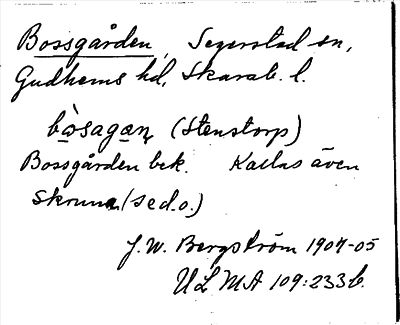 Bossgården, Segerstad sn,
Gudhems hd, Skarab. l.
bòsagan (Stenstorp)
Bossgården bek. Kallas även
Skruna (se d.o.)
J. W. Bergström 1904-05
ULMA 109:233b.